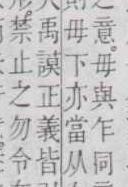 之意。毋與乍同意
則毋下亦當从
大禹謨正義皆
禁止之勿令